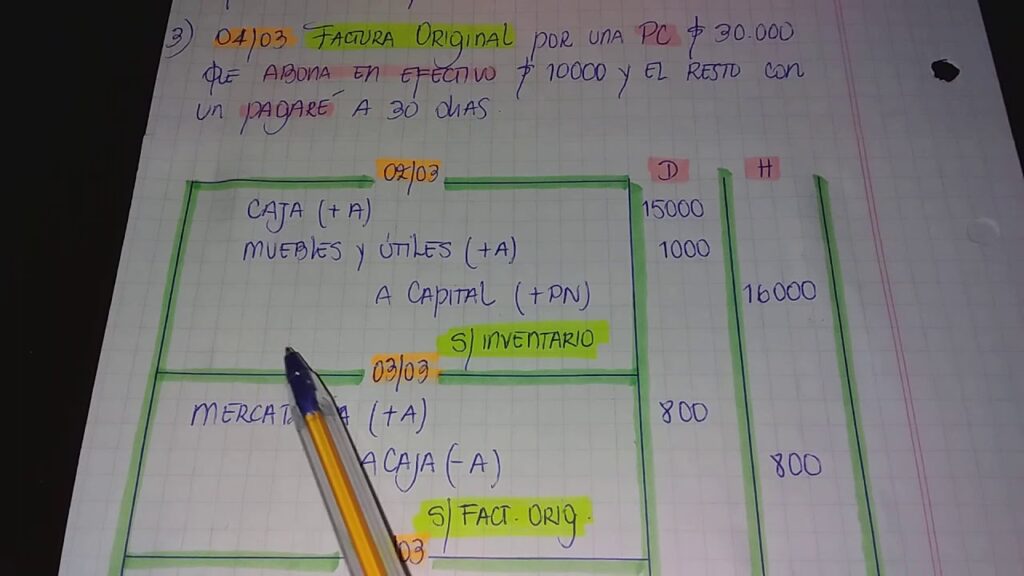 3) 04/03 FACTURA ORIGINAL POR UNA PC $ 30.000
QUE ABONA EN EFECTIVO $ 10000 y EL RESTO CON
UN PAGARÉ A 30 DIAS.
02/03 D H
CAJA (+A) 15000
MUEBLES y ÚTILES (+A) 1000
A CAPITAL (+PN) 16000
S/ INVENTARIO
03/03
(+A) 800
A CAJA (-A) 800
S/ FACT. ORIG.